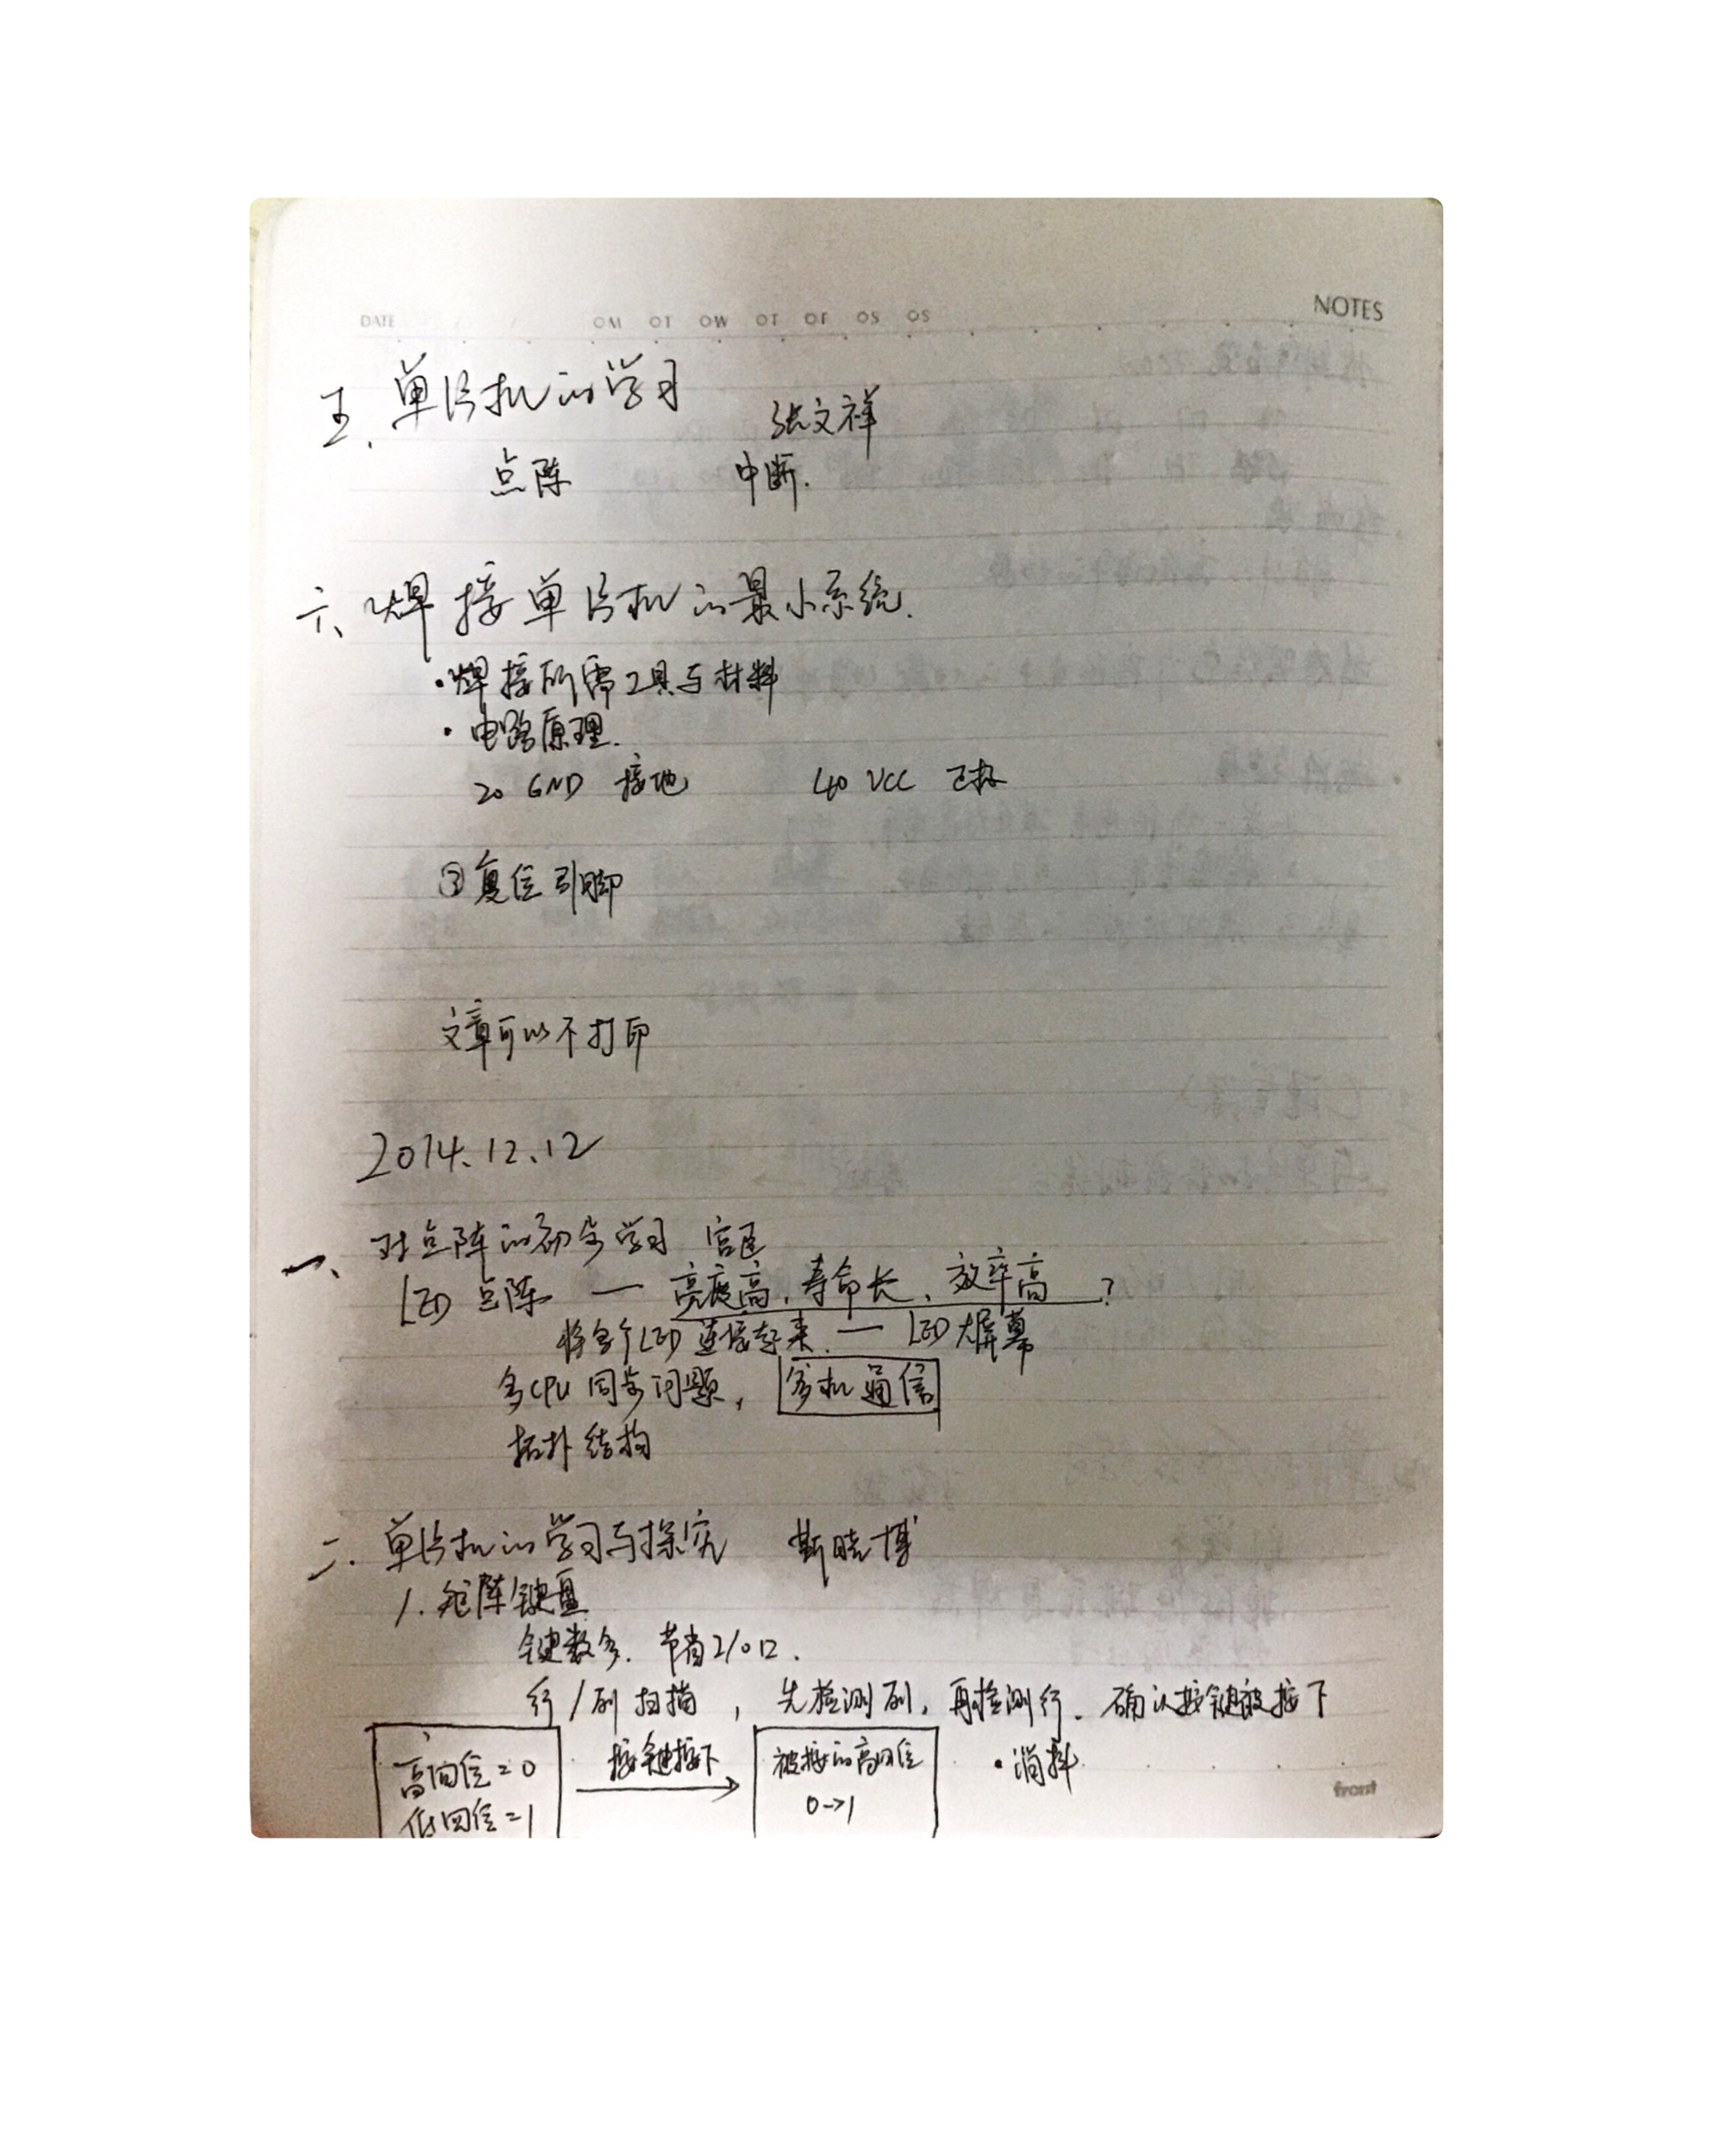 DATE
NOTES
五、单片机的学习 张文祥
点阵 中断.
六、焊接单片机的最小系统.
·焊接所需工具与材料
·电路原理.
20 GND 接地 40 VCC 正极
③复位引脚
文章可以不打印
2014.12.12
一、对点阵的初步学习
LED 点阵 — 亮度高,寿命长、效率高?
将多个LED 连接起来. — LED 大屏幕
多CPU 同步问题, 多机通信
拓扑结构
二.单片机的学习与探究 靳晓博
1.矩阵键盘
键数多.节省I/O口.
行/列扫描,先检测列,再检测行.确认按键被按下
高四位=0 按键按下 被按的高四位 ·消抖
低四位=1 0→1
front